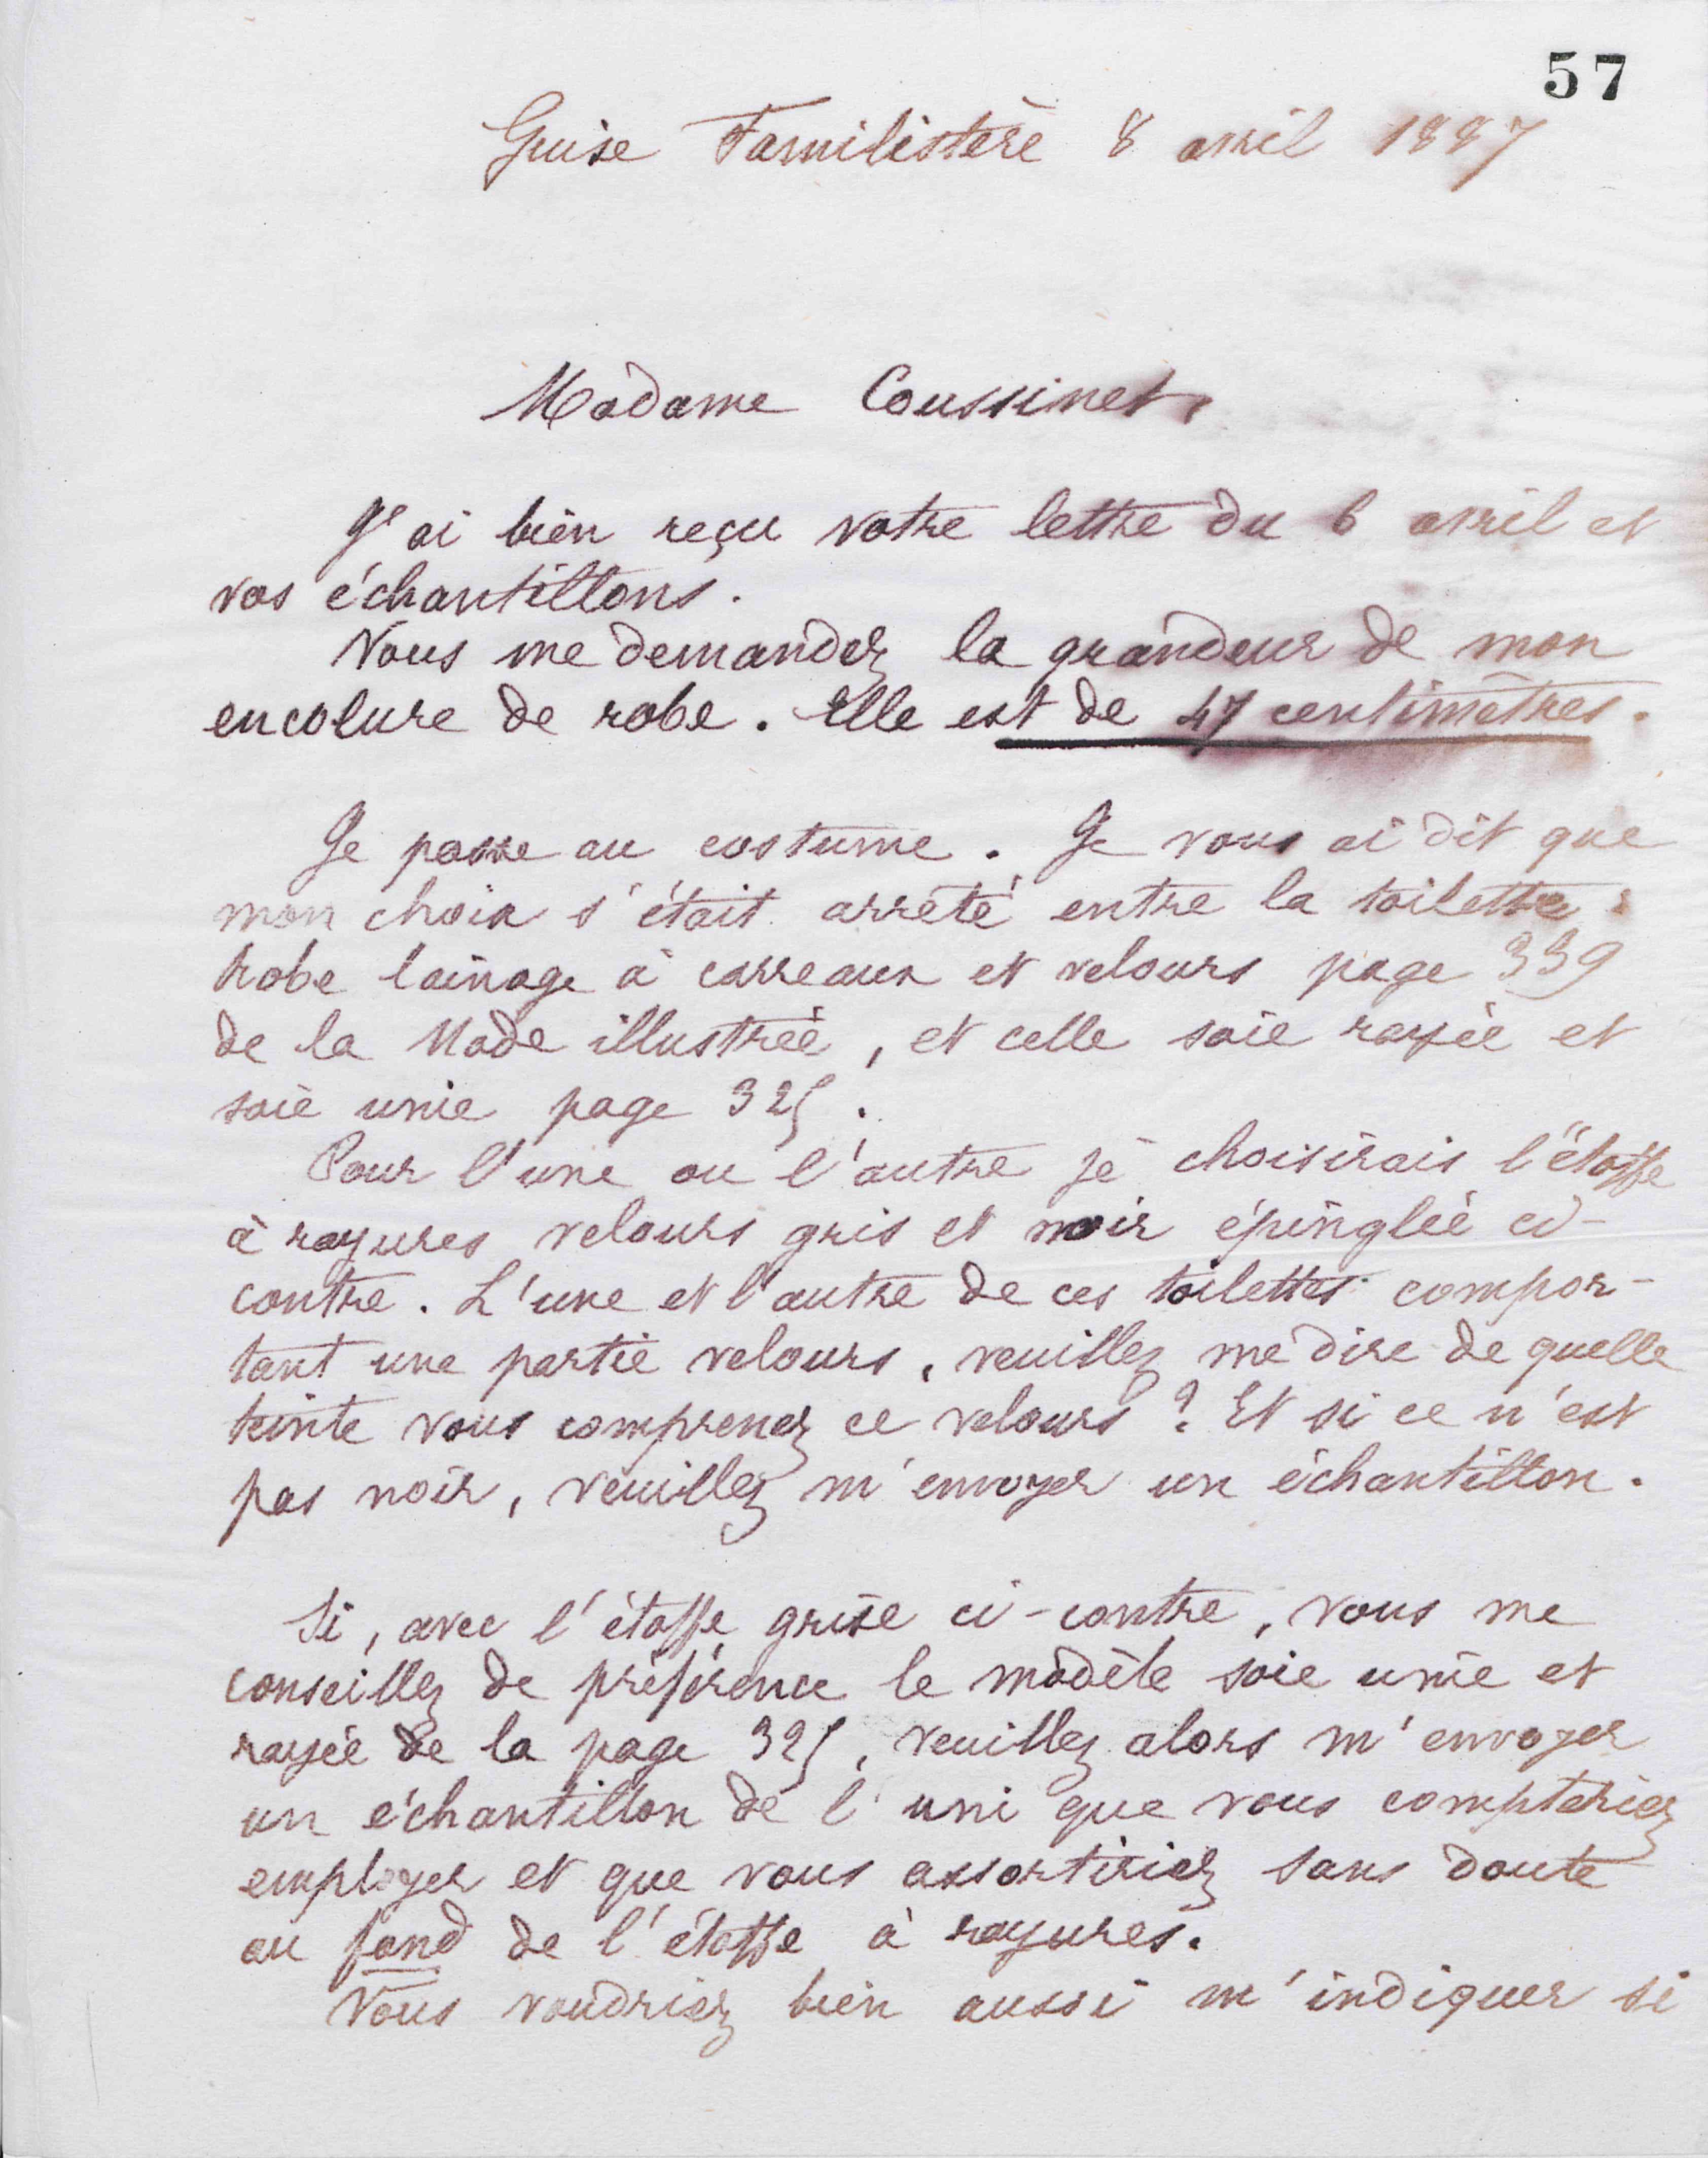 57
Guise Familistère 8 avril 1887
Madame Coussinet,
J'ai bien reçu votre lettre du 6 avril et
vos échantillons.
Vous me demandez la grandeur de mon
encolure de robe. Elle est de 47 centimètres.
Je passe au costume. Je vous ai dit que
mon choix s'était arrêté entre la toilette :
robe lainage à carreaux et velours page 339
de la Mode illustrée, et celle soie rayée et
soie unie page 325.
Pour l'une ou l'autre je choisirais l'étoffe
à rayures velours gris et noir épinglée ci-
contre. L'une et l'autre de ces toilettes compor-
tant une partie velours, veuillez me dire de quelle
teinte vous comprenez ce velours ? Et si ce n'est
pas noir, veuillez m'envoyer un échantillon.
Si, avec l'étoffe grise ci-contre, vous me
conseillez de préférence le modèle soie unie et
rayée de la page 325, veuillez alors m'envoyer
un échantillon de l'uni que vous compteriez
employer et que vous assortiriez sans doute
au fond de l'étoffe à rayures.
Vous voudriez bien aussi m'indiquer si